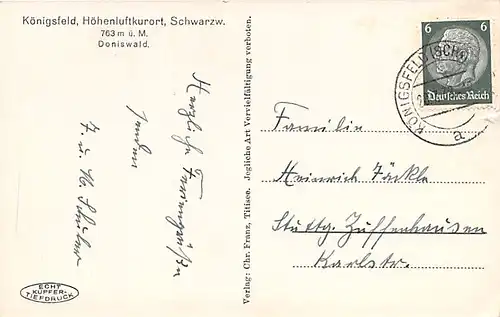 Königsfeld, Höhenluftkurort, Schwarzw.
763 m ü. M.
Doniswald.
Herzliche Feriengrüße
senden
Verlag: Chr. Franz, Titisee. Jegliche Art Vervielfältigung verboten.
6 6
Deutsches Reich
KÖNIGSFELD (SCHW
a
Familie
Heinrich Jäckle
Stuttg. Zuffenhausen
Karlstr.
ECHT
KUPFER-
TIEFDRUCK